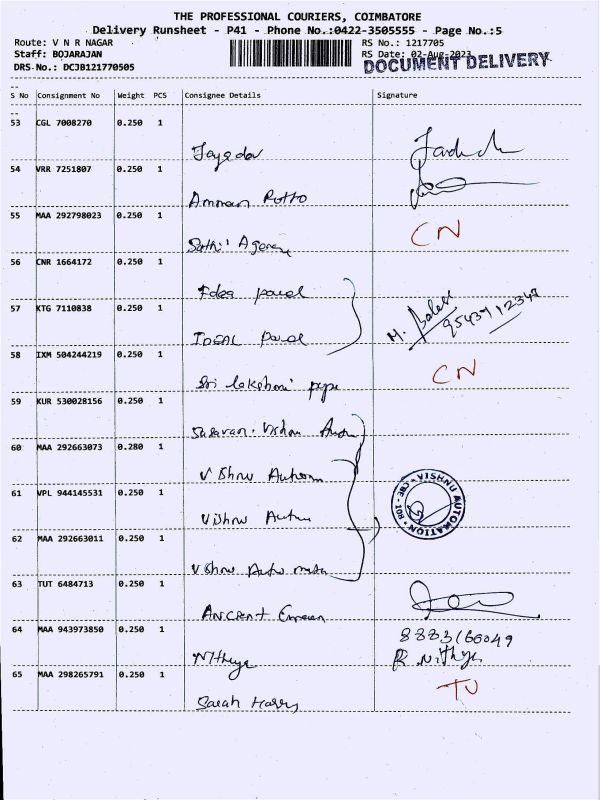 THE PROFESSIONAL COURIERS, COIMBATORE
Delivery Runsheet - P41 - Phone No.:0422-3505555 - Page No.:5
Route: V N R NAGAR RS No.: 1217705
Staff: BOJARAJAN RS Date: 02-Aug-2023
DRS-No.: DCJB121770505 DOCUMENT DELIVERY
S No Consignment No Weight PCS Consignee Details Signature
53 CGL 7008270 0.250 1
Jayadev
54 VRR 7251807 0.250 1
Amman
55 MAA 292798023 0.250 1 CN
Sathi Agency
56 CNR 1664172 0.250 1
Idea panel
57 KTG 7110838 0.250 1 9543712347
IDEAL Panel
58 IXM 504244219 0.250 1 CN
Sri lakshmi pipe
59 KUR 530028156 0.250 1
Vishnu
60 MAA 292663073 0.280 1
Vishnu
61 VPL 944145531 0.250 1 VISHNU AUTOMATION
Vishnu
62 MAA 292663011 0.250 1
Vishnu
63 TUT 6484713 0.250 1
Ancient
64 MAA 943973850 0.250 1 8883166049
Nithya R. Nithya
65 MAA 298265791 0.250 1 TU
Sarah Harry